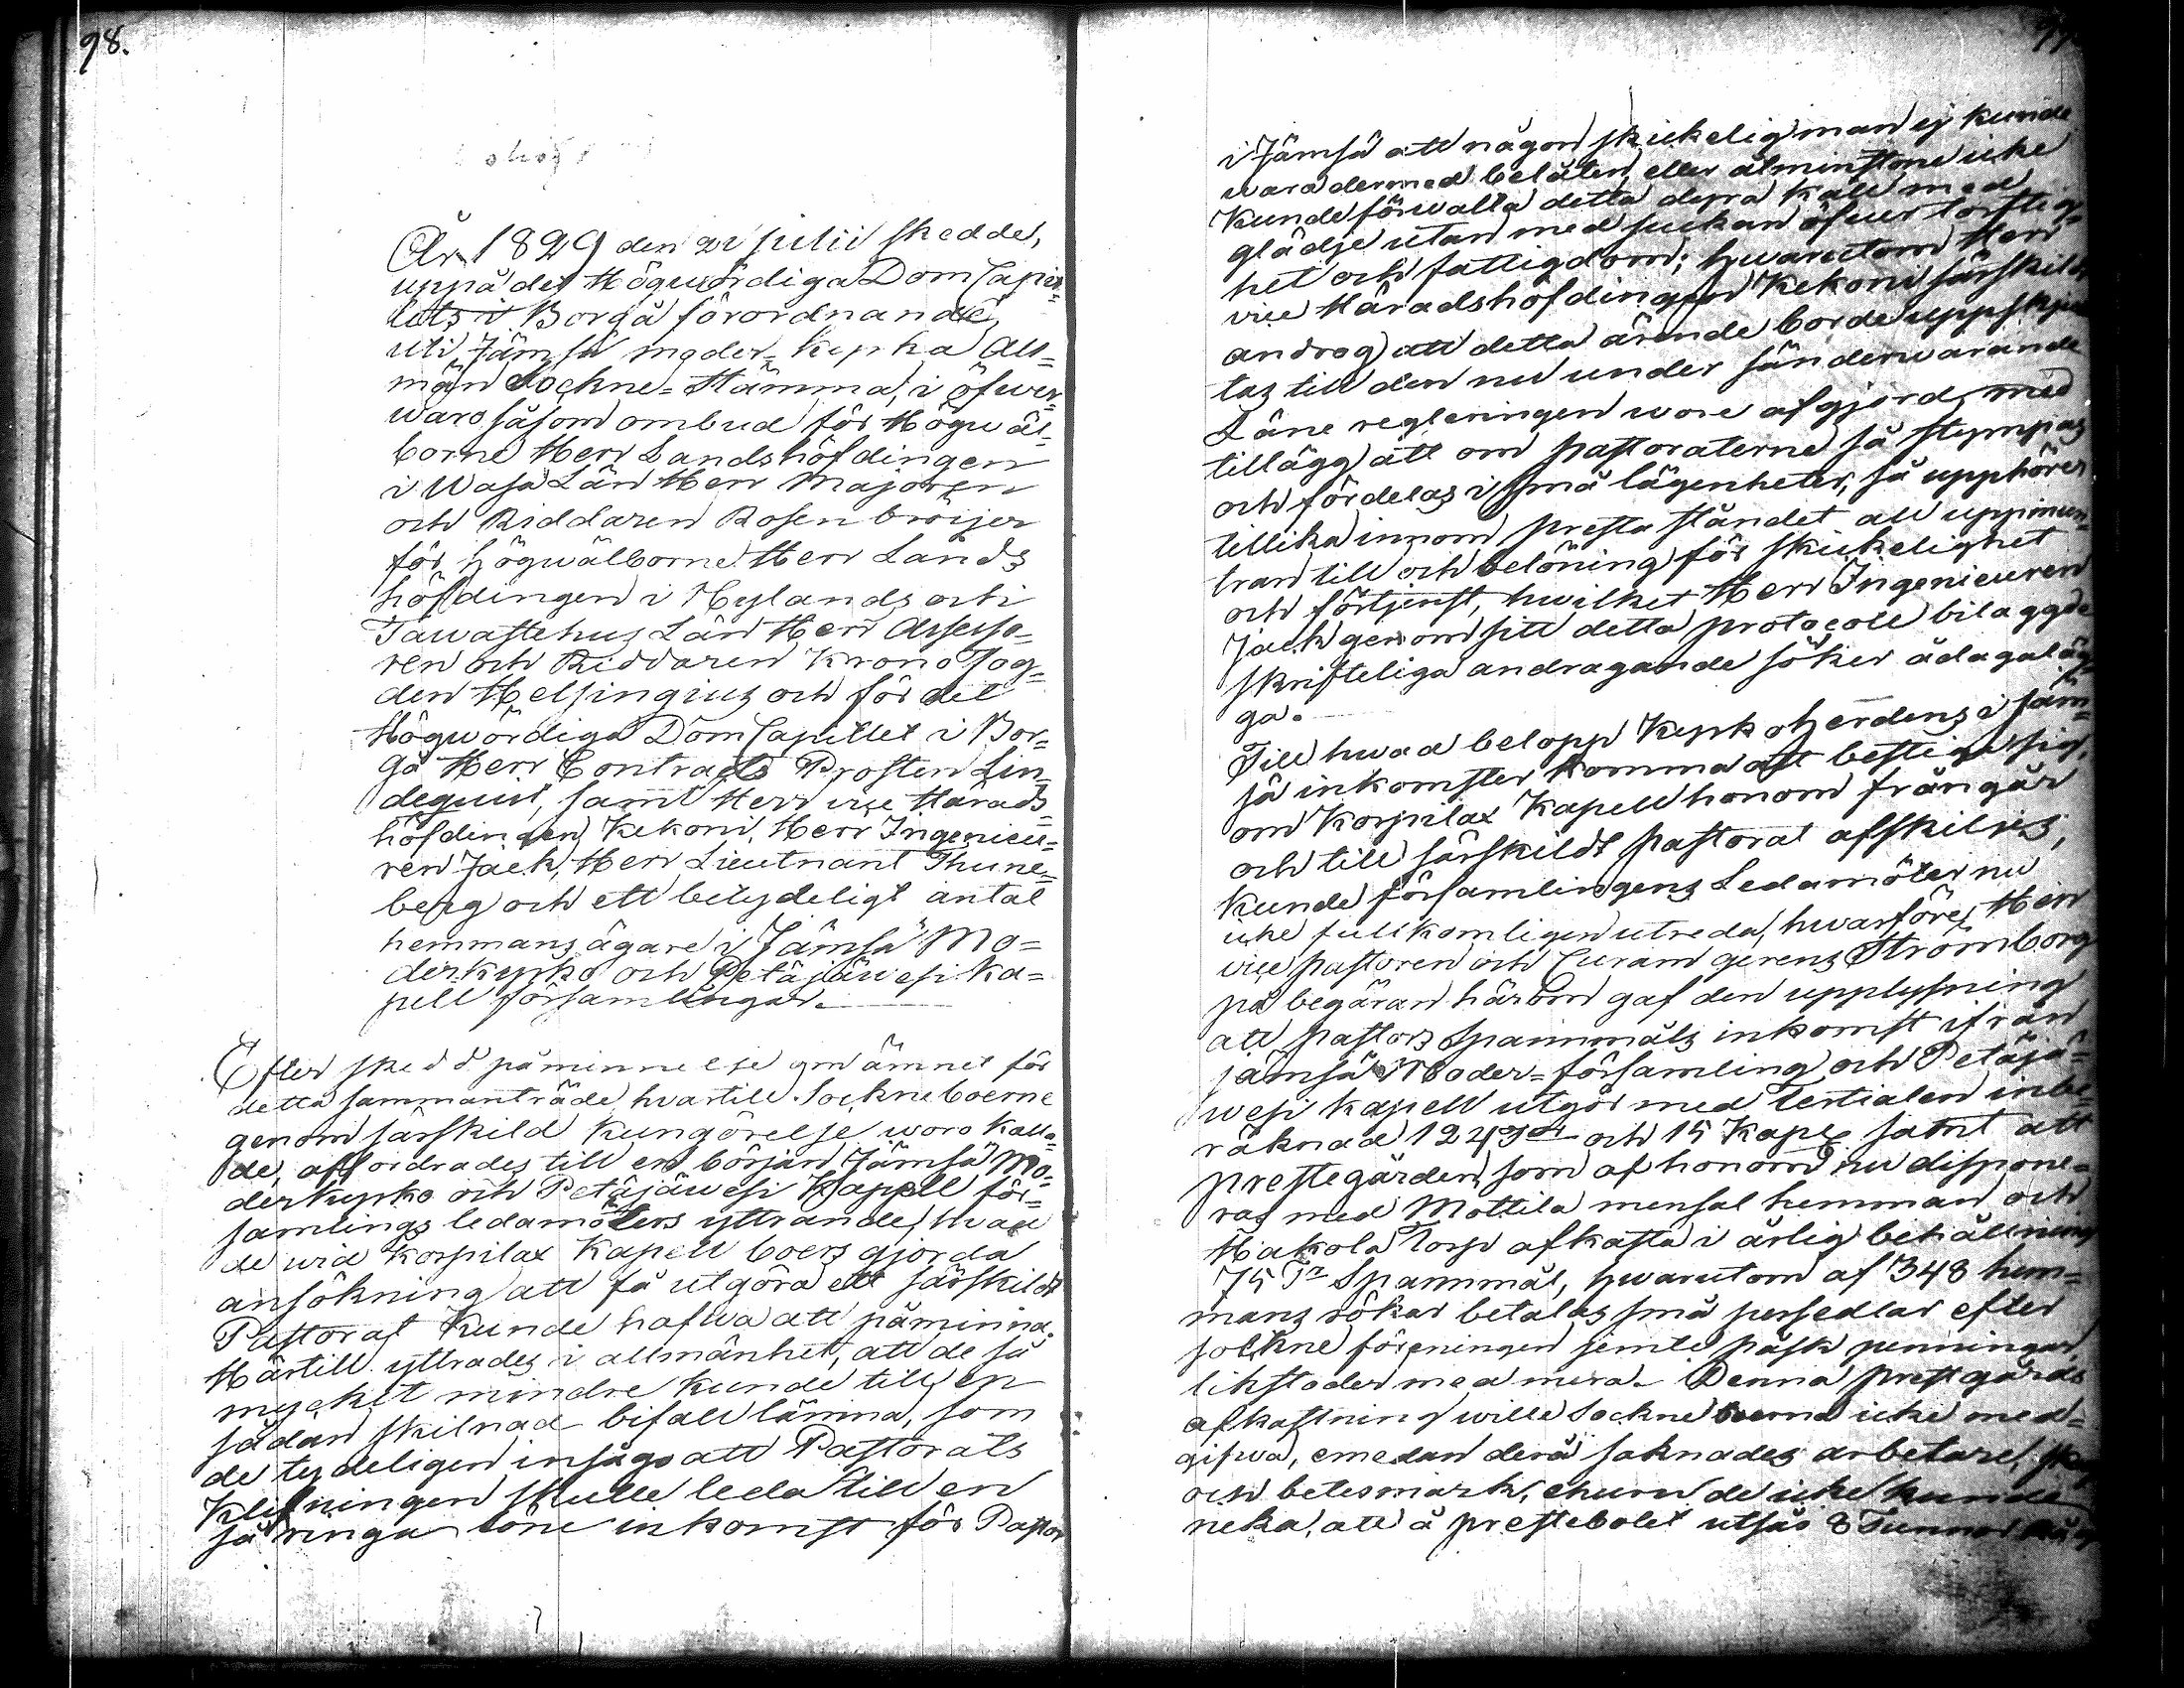 98.
År 1829 den 21 Julii skedde,
uppå det Högwördiga Dom Capit=
lets i Borgå förordnande,
uti Jämsä moder=kyrka All=
män Sockne=Stämma, i öfwer=
waro såsom ombud för Högwäl=
borne Herr Landshöfdingen
i Wasa Län Herr Majoren
och Riddaren Rosenbröijer
för Högwälborne Herr Lands
höfdingen i Nylands och
Tawastehus Län Herr Assesso=
ren och Riddaren Kronofog=
den Helsingius och för det
Högwördiga Dom Capitlet i Bor=
gå Herr Contracts Prosten Lin=
dequist, samt Herr vice Härads
höfdingen Kekoni, Herr Ingenieu=
ren Jack, Herr Lieutnant Thune=
berg och ett betydeligt antal
hemmansägare i Jämsä Mo=
derkyrko och Petäjäwesi Ka=
pell församlingar.
Efter skedd påminnelse om ämnet för
detta sammanträde, hvartill Sockneboerne
genom särskild Kungörelse woro kalla=
de, affordrades till en början Jämsä Mo=
derkyrko och Petäjäwesi Kapell för=
samlings ledamöters yttrande, hvad
de wid Korpilax Kapell boers gjorda
ansökning att få utgöra ett särskildt
Pastorat Kunde hafwa att påminna.
Härtill yttrades i allmänhet, att de så
mycket mindre kunde till en
sådan skilnad bifall lämna, som
de tydeligen insågo att Pastorats
Klyfningen skulle leda till en
så ringa löne inkomst för Pastor
i Jämsä att någon skickelig man ej kunde
wara dermed belåten, eller åtminstone icke
Kunde förwalta detta dyra kall med
glädje utan med suckan öfwer torftig=
het och fattigdom; hwarutom Herr
vice Häradshöfdingen Kekoni särskildt
androg att detta ärende borde uppskju
tas till dess nu under händerwarande
Läne regleringen wore afgjord, med
tillägg att om pastoraterne så stympas
och fördelas i små lägenheter, så upphörer
tillika inom presta ståndet all uppmun=
tran till och belöning för skickelighet
och förtjenst, hwilket Herr Ingenieuren
Jack genom sitt detta protocoll bilaggde
skrifteliga andragande söker ådagaläg
ga.
Till hwad belopp Kyrkoherdens i Jäm=
sä inkomster komma att bestiga sig,
om Korpilax Kapell honom frångår
och till särskildt pastorat afskiljes,
Kunde församlingens Ledamöter nu
icke fullkomligen utreda, hwarföre Herr
vice pastoren och Curam gerens Strömborg
på begäran härom gaf den upplysning
att pastors Spannmåls inkomst ifrån
Jämsä Moder=församling och Petäjä=
wesi Kapell utgör med Tertialen inbe=
räknad 124 och 15 Kap samt att
prestegården, som af honom nu dispone=
ras med Mottila mensal hemman och
Hakola Torp afkasta i årlig behållning
75 Tr Spannmål, hwarutom af 348 hem=
mans rökar betalas små persedlar efter
sockne föreningen jemte påsk penningar,
likstoder med mera. Denna prestgårds
afkastning wille Sockneboerna icke med=
gifwa, emedan derå saknades arbetare,
och betesmark, ehuru de icke kunde
neka, att å prestebolet utsås 8 Tunnor